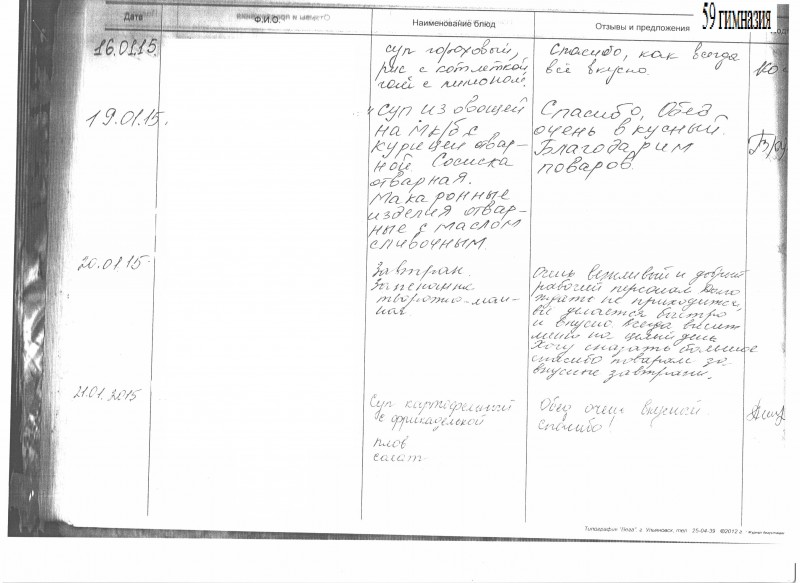 59 гимназия
Дата
Ф.И.О.
Наименование блюд
Отзывы и предложения
16.01.15
суп гороховый,
рис с котлеткой
чай с лимоном.
Спасибо, как всегда
всё вкусно.
19.01.15.
Суп из овощей
на мк/б с
курицей отвар-
ной. Сосиска
отварная.
Макаронные
изделия отвар-
ные с маслом
сливочным.
Спасибо, Обед
очень вкусный.
Благодарим
поваров.
20.01.15
Завтрак.
Запеканка
творожно-ман-
ная.
Очень вежливый и добрый
рабочий персонал. Долго
ждать не приходится,
всё делается быстро
и вкусно. Всегда висит
меню на целый день
Хочу сказать большое
спасибо поварам за
вкусные завтраки.
21.01.2015
Суп картофельный
с фрикаделькой
плов
салат
Обед очень вкусной.
спасибо!
Типография "Вега", г. Ульяновск, тел. 25-04-33 ©2012 г.